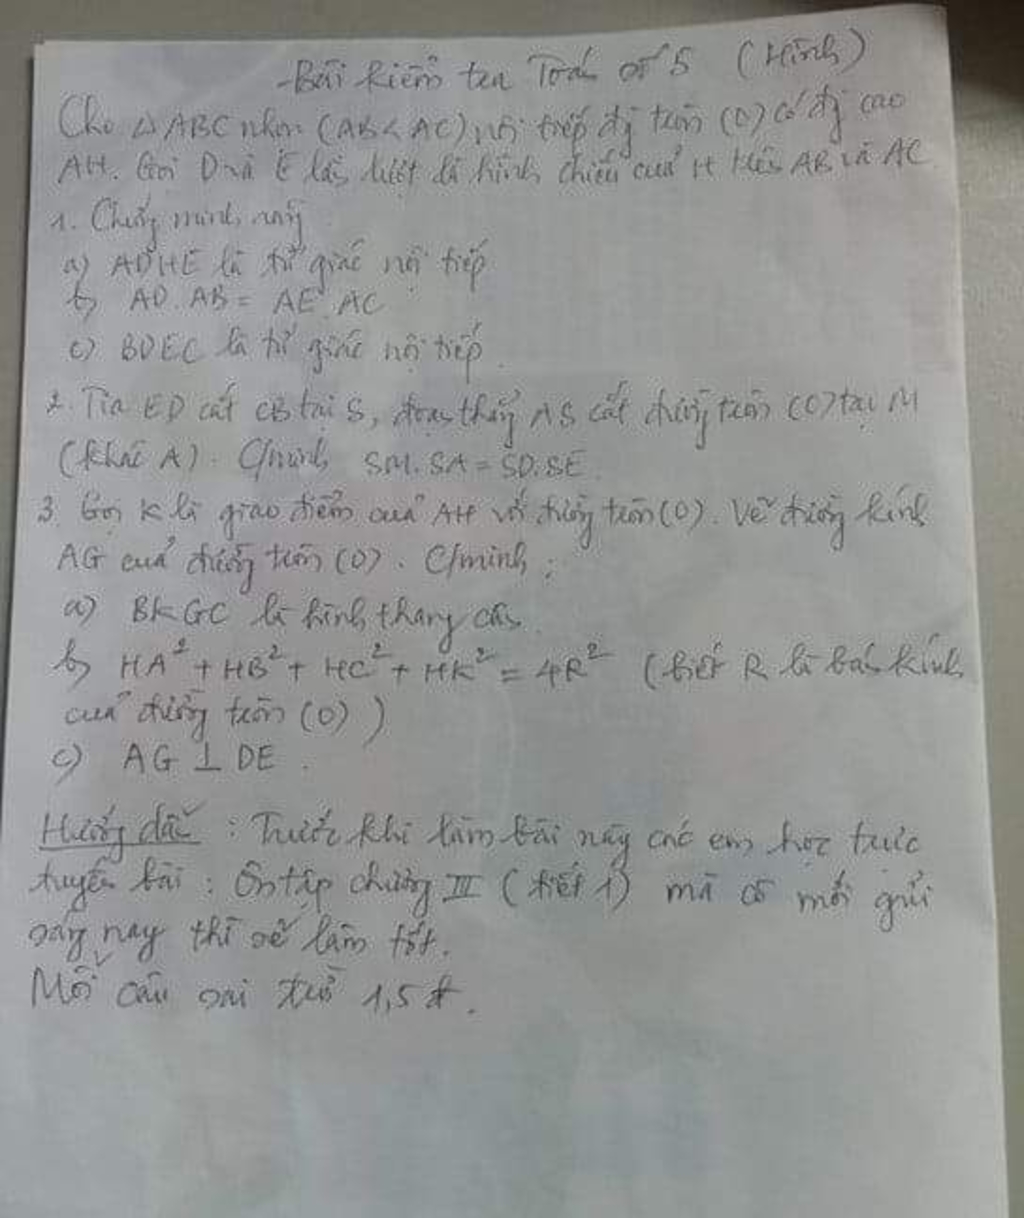 Bài kiểm tra Toán số 5 (Hình)
Cho △ABC nhọn (AB < AC) nội tiếp đg tròn (O) có đg cao
AH. Gọi D và E lần lượt là hình chiếu của H trên AB và AC
1. Chứng minh rằng
a) ADHE là tứ giác nội tiếp
b) AD.AB = AE.AC
c) BDEC là tứ giác nội tiếp.
2. Tia ED cắt CB tại S, đoạn thẳng AS cắt đường tròn (O) tại M
(khác A). C/minh SM.SA = SD.SE
3. Gọi K là giao điểm của AH với đường tròn (O). Vẽ đường kính
AG của đường tròn (O). C/minh:
a) BKGC là hình thang cân
b) HA² + HB² + HC² + HK² = 4R² (biết R là bán kính
của đường tròn (O))
c) AG ⊥ DE.
Hướng dẫn: Trước khi làm bài này các em học trực
tuyến bài: Ôn tập chương III (tiết 1) mà cô mới gửi
sáng nay thì sẽ làm tốt.
Mỗi câu sai trừ 1,5đ.